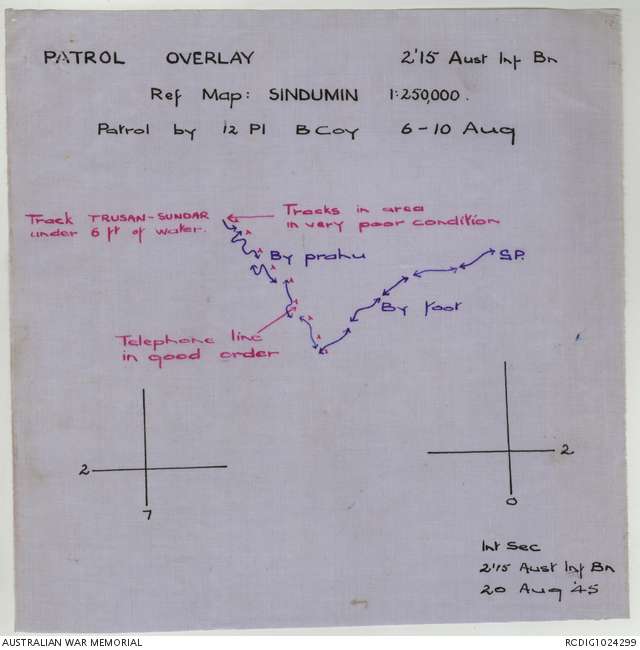 PATROL OVERLAY 2'15 Aust Inf Bn
Ref Map: SINDUMIN 1:250,000.
Patrol by 12 Pl B Coy 6-10 Aug
Track TRUSAN-SUNDAR
under 6 ft of water.
Tracks in area
in very poor condition
By prahu
S.P.
By foot
Telephone line
in good order
2
7
2
0
Int Sec
2'15 Aust Inf Bn
20 Aug '45
AUSTRALIAN WAR MEMORIAL
RCDIG1024299